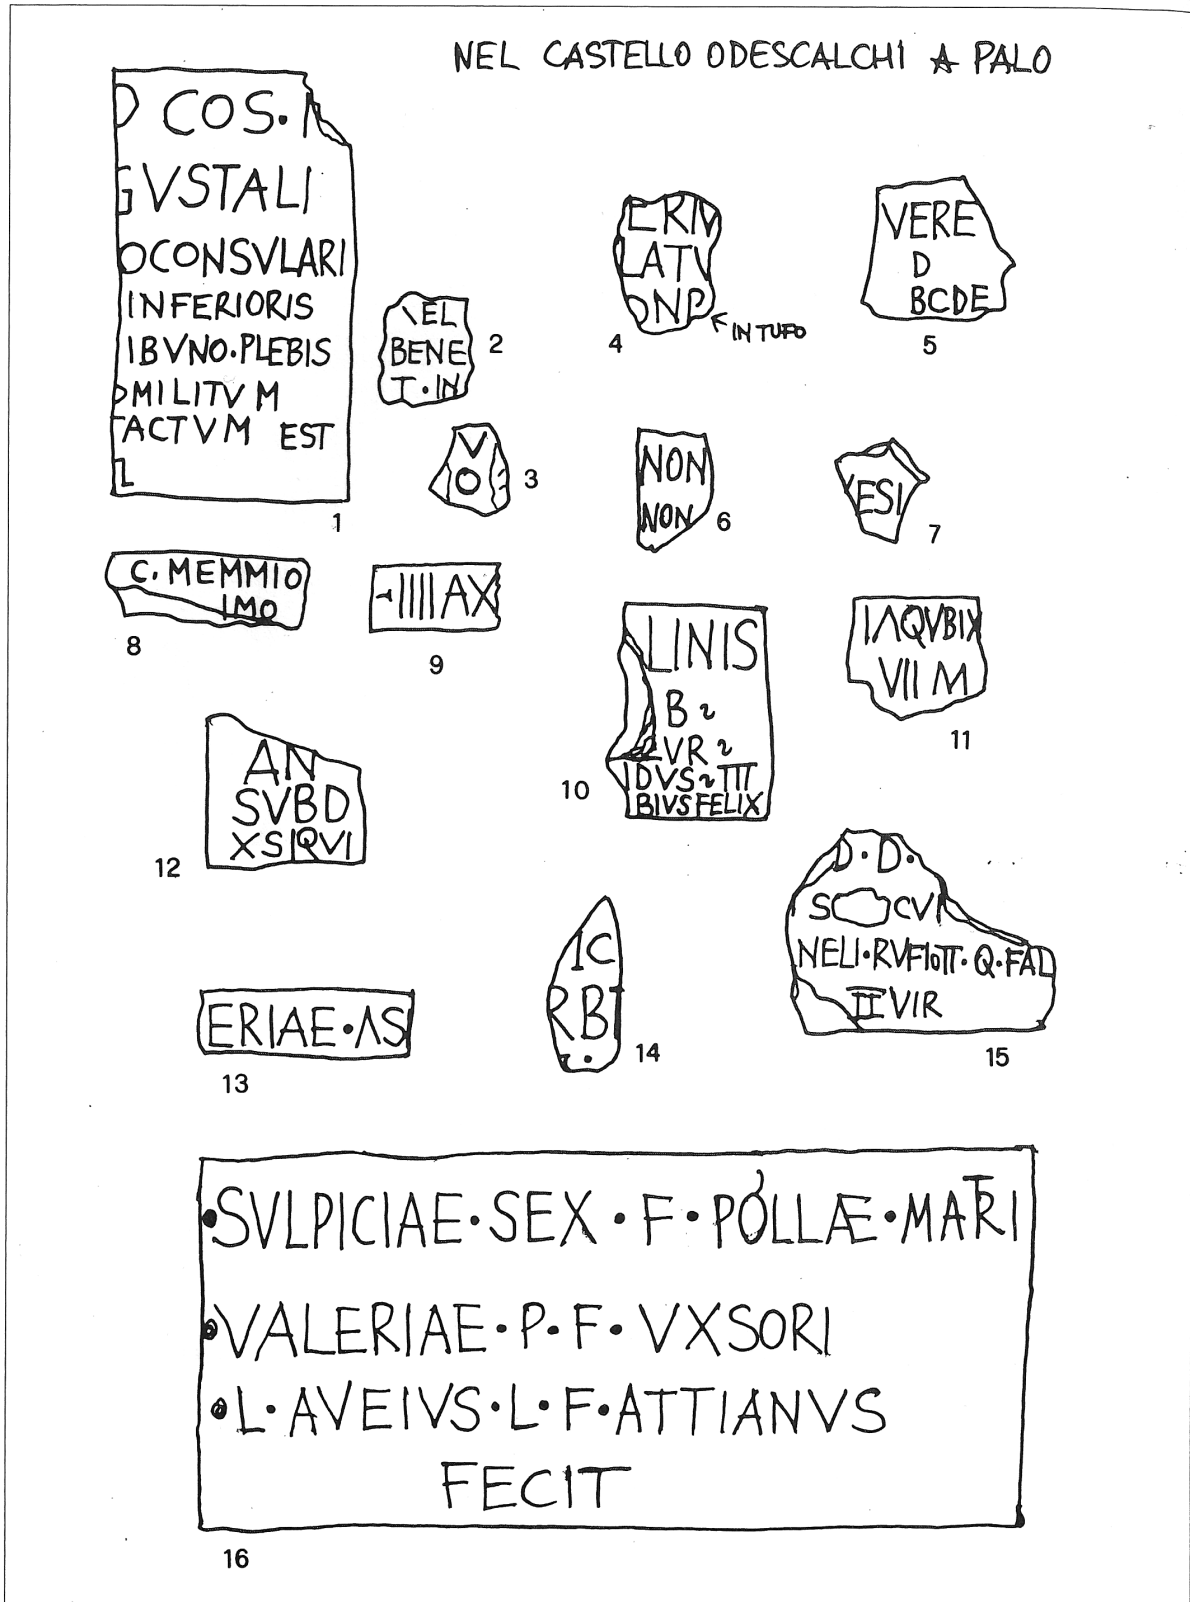 NEL CASTELLO ODESCALCHI A PALO
COS.
GVSTALI
OCONSVLARI
INFERIORIS
IBVNO.PLEBIS
MILITVM
ACTVM EST
L
1
VEL
BENE
T·IN
2
V
O
3
ERIV
LATV
ONP
IN TUFO
4
VERE
D
BCDE
5
NON
NON
6
ESI
7
C. MEMMIO
IMO
8
IIIIAX
9
LINIS
B
VR
IDVS III
BIVSFELIX
10
IΛQVBIX
VII M
11
AN
SVBD
XSIQVI
12
ERIAE·ΛS
13
IC
RB
14
D·D·
S CVI
NELI·RVF Q·FAL
IIVIR
15
·SVLPICIAE·SEX·F·POLLÆ·MATRI
·VALERIAE·P·F·VXSORI
·L·AVEIVS·L·F·ATTIANVS
FECIT
16